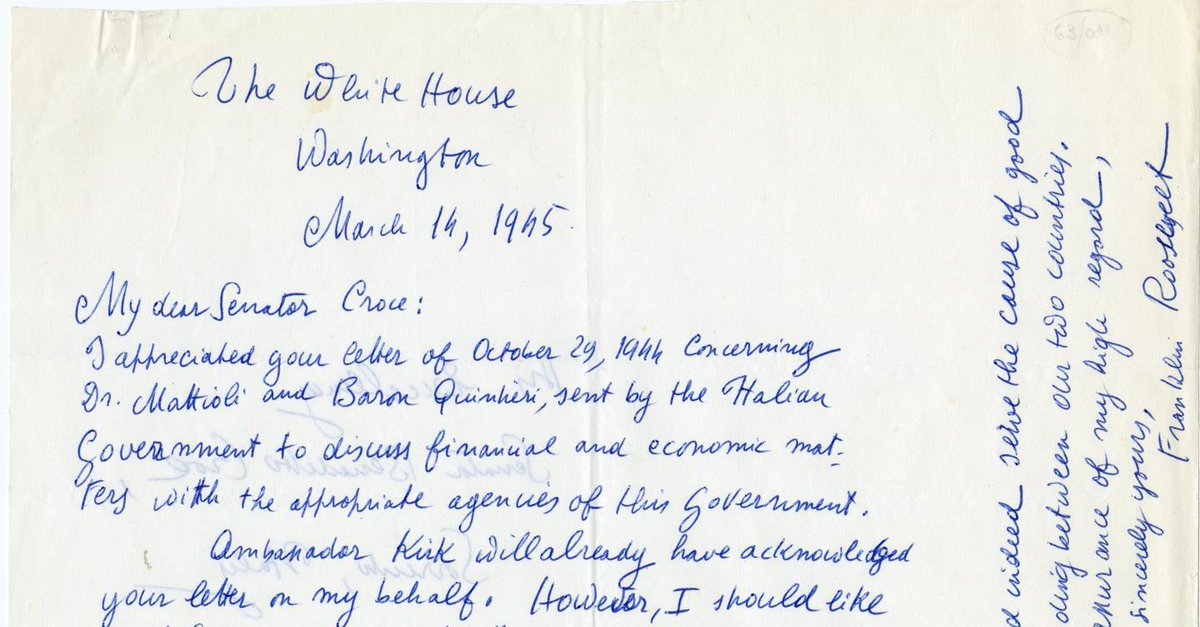 The White House
Washington
March 14, 1945.
My dear Senator Croce:
I appreciated your letter of October 29, 1944 concerning
Dr. Mattioli and Baron Quintieri, sent by the Italian
Government to discuss financial and economic mat-
ters with the appropriate agencies of this Government.
Ambassador Kirk will already have acknowledged
your letter on my behalf. However, I should like
indeed serve the cause of good
ding between our two countries.
surance of my high regard,
sincerely yours,
Franklin Roosvelt